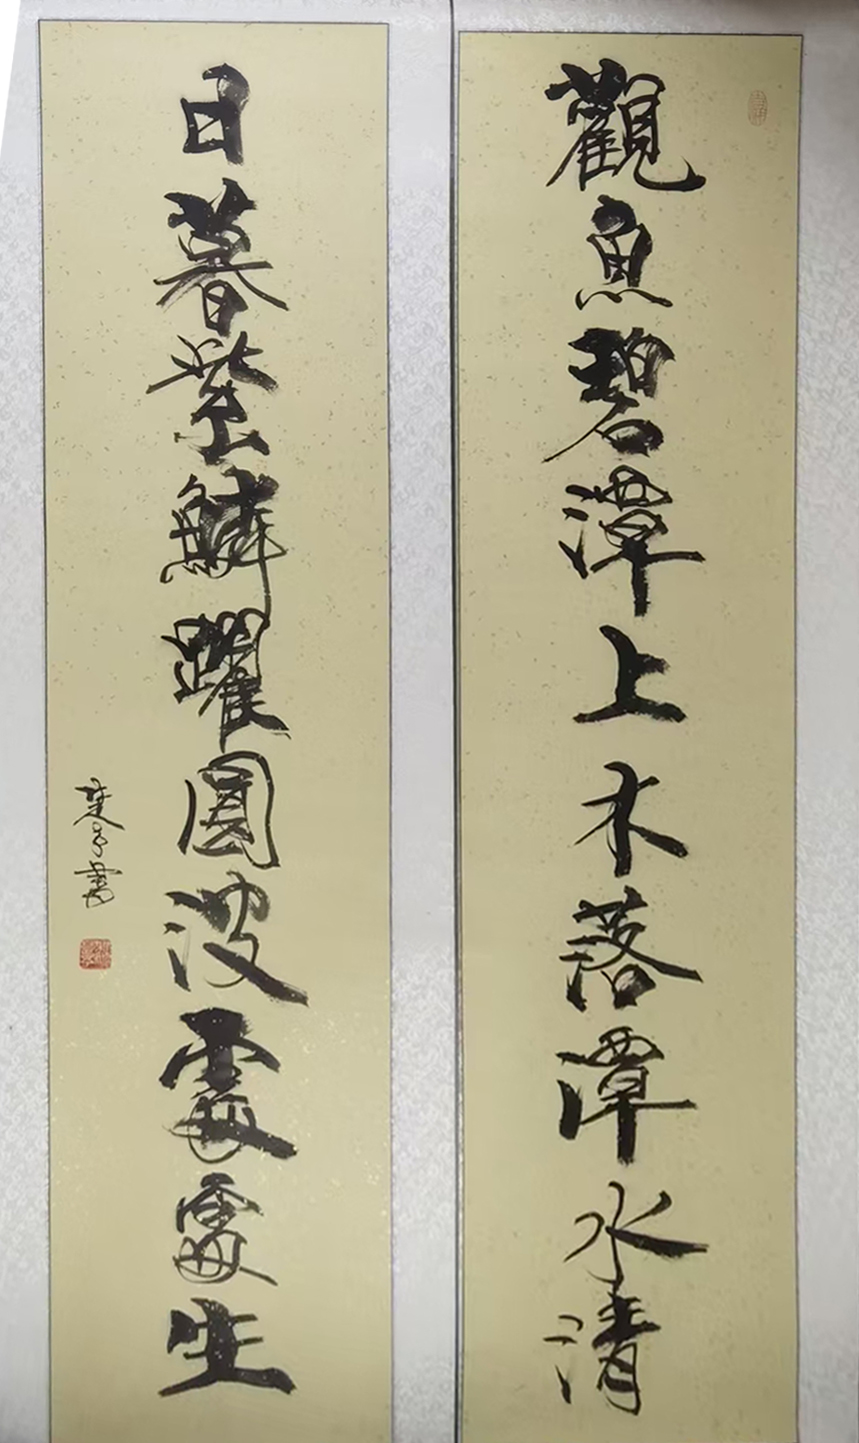 觀魚碧潭上木落潭水清
日暮紫鱗躍圓波處處生